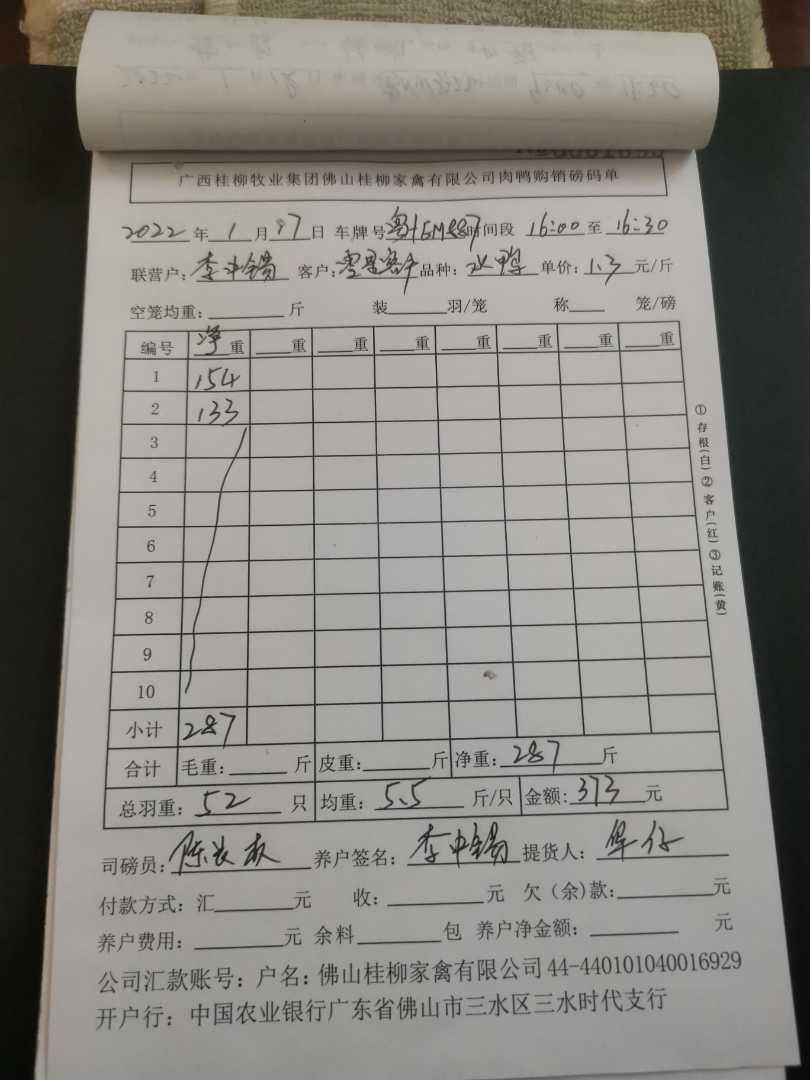 广西桂柳牧业集团佛山桂柳家禽有限公司肉鸭购销磅码单
2022年1月17日 车牌号 时间段 16:00至16:30
联营户:李中锡 客户:零星客户 品种: 鸭 单价:1.3元/斤
空笼均重: 斤 装 羽/笼 称 笼/磅
编号 净重 重 重 重 重 重 重 重
1 154
2 133
3
4
5
6
7
8
9
10
小计 287
合计 毛重: 斤 皮重: 斤 净重:287斤
总羽重:52只 均重:5.5斤/只 金额:373元
司磅员:陈 养户签名:李中锡 提货人: 仔
付款方式:汇 元 收: 元 欠(余)款: 元
养户费用: 元 余料 包 养户净金额: 元
公司汇款账号:户名:佛山桂柳家禽有限公司44-440101040016929
开户行:中国农业银行广东省佛山市三水区三水时代支行
①存根(白)②客户(红)③记账(黄)